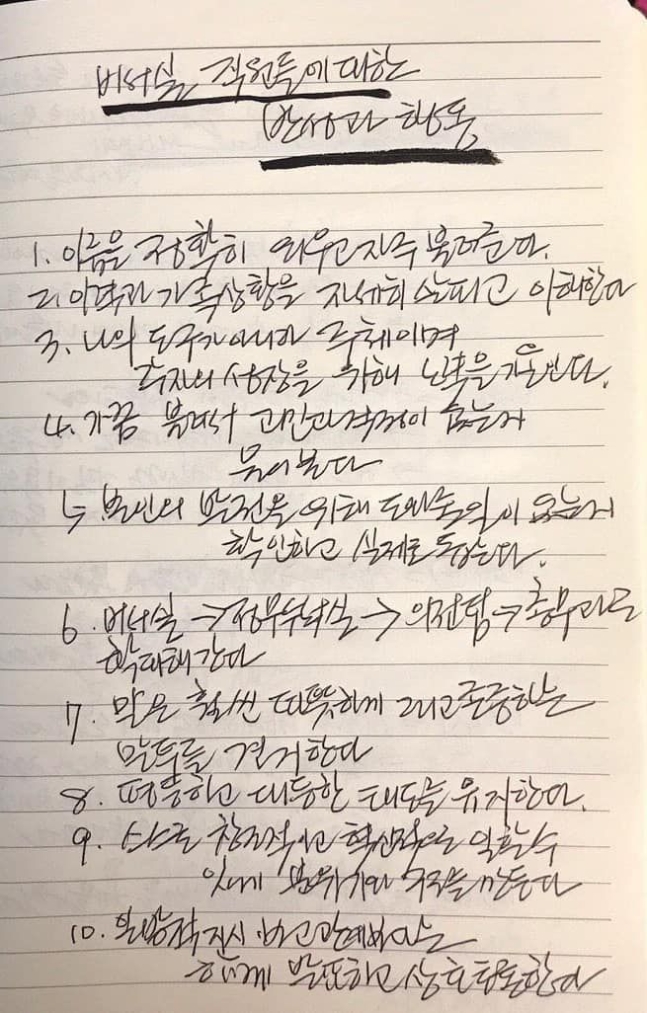 비서실 직원들에 대한
반성과 행동
1. 이름을 정확히 외우고 자주 불러준다.
2. 이력과 가족상황을 자세히 살피고 이해한다
3. 나의 도구가 아니라 주체이며
각자의 성장을 위해 노력을 기울인다.
4. 가끔 불러서 고민과 걱정이 없는지
물어본다
5. 본인의 발전을 위해 도와줄 일이 없는지
확인하고 실제로 돕는다.
6. 비서실 → 정무부시장실 → 의전팀 → 총무과로
확대해 간다
7. 말은 훨씬 따뜻하게 그리고 존중하는
말투를 견지한다
8. 평등하고 대등한 태도를 유지한다.
9. 스스로 창조적이고 혁신적으로 일할 수
있게 분위기와 구조를 만든다
10. 일방적 지시·보고 관계 아니라
함께 발표하고 상호 토론한다